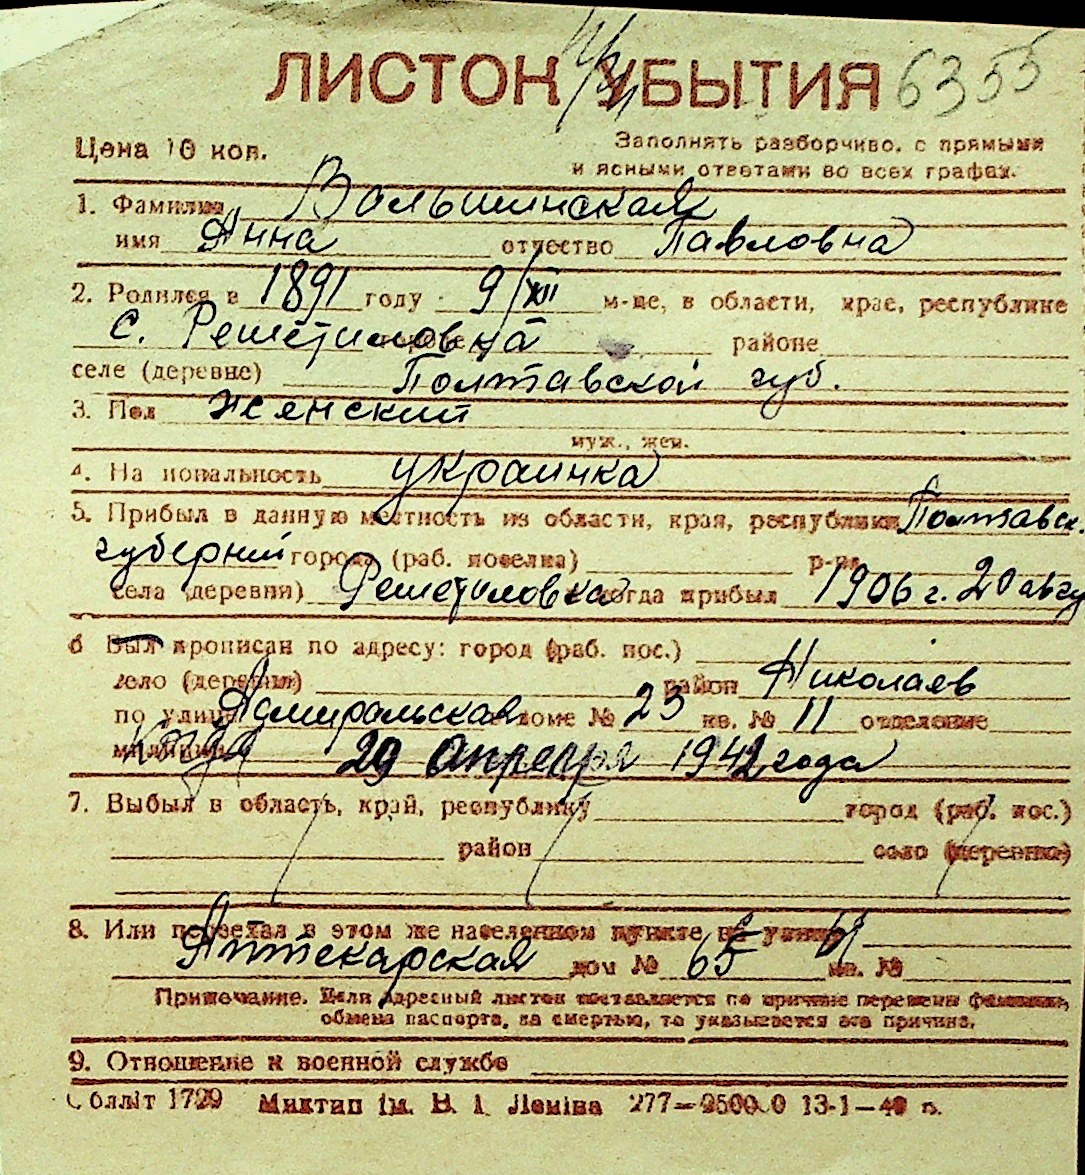 ЛИСТОК УБЫТИЯ 6355
Цена 10 коп.
Заполнять разборчиво, с прямыми
и ясными ответами во всех графах.
1. Фамилия Вольшинская
имя Анна отчество Павловна
2. Родился в 1891 году 9/XII м-це, в области, крае, республике
с. Решетиловка районе
селе (деревне) Полтавской губ.
3. Пол женский
муж., жен.
4. Национальность украинка
5. Прибыл в данную местность из области, края, республики Полтавск.
губерний города (раб. поселка) р-на
села (деревни) Решетиловка когда прибыл 1906 г. 20 авгу
6 Был прописан по адресу: город (раб. пос.)
село (деревня) район Николаев
по улице Адмиральская доме № 23 кв. № 11 отделение
милиции когда 29 апреля 1942 года
7. Выбыл в область, край, республику город (раб. пос.)
район село (деревню)
8. Или переехал в этом же населенном пункте на улицу
Аптекарская дом № 65 кв. №
Примечание. Если адресный листок составляется по причине перемены фамилии,
обмена паспорта, за смертью, то указывается эта причина.
9. Отношение к военной службе
Облліт 1799 Миктип ім. В. І. Леніна 13-1-40 р.